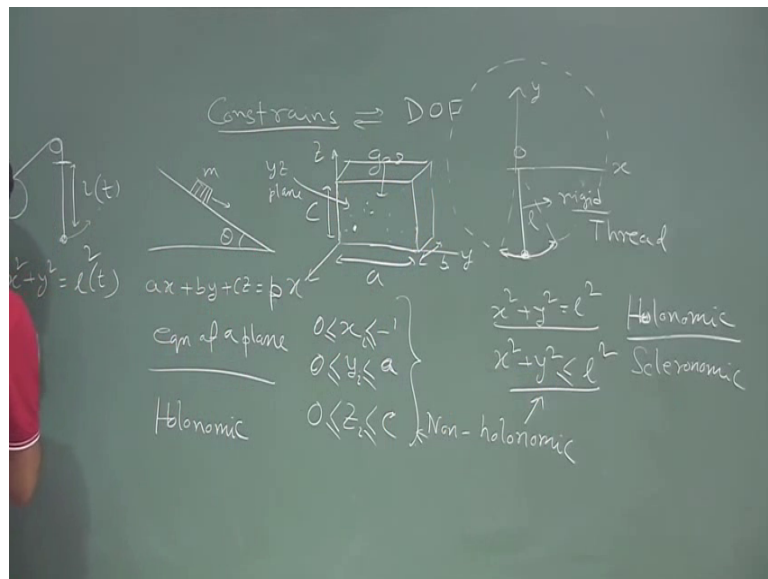 Constrains ⇌ DOF
l(t)
x²+y²=l²(t)
m
θ
ax+by+cz=p
Eqn of a plane
Holonomic
z
yz
plane
gas
c
a
b
y
x
0≤x≤-b
0≤y≤a
0≤z≤c
Non-holonomic
y
O
x
l
rigid
Thread
x²+y²=l² Holonomic
x²+y²≤l² Scleronomic